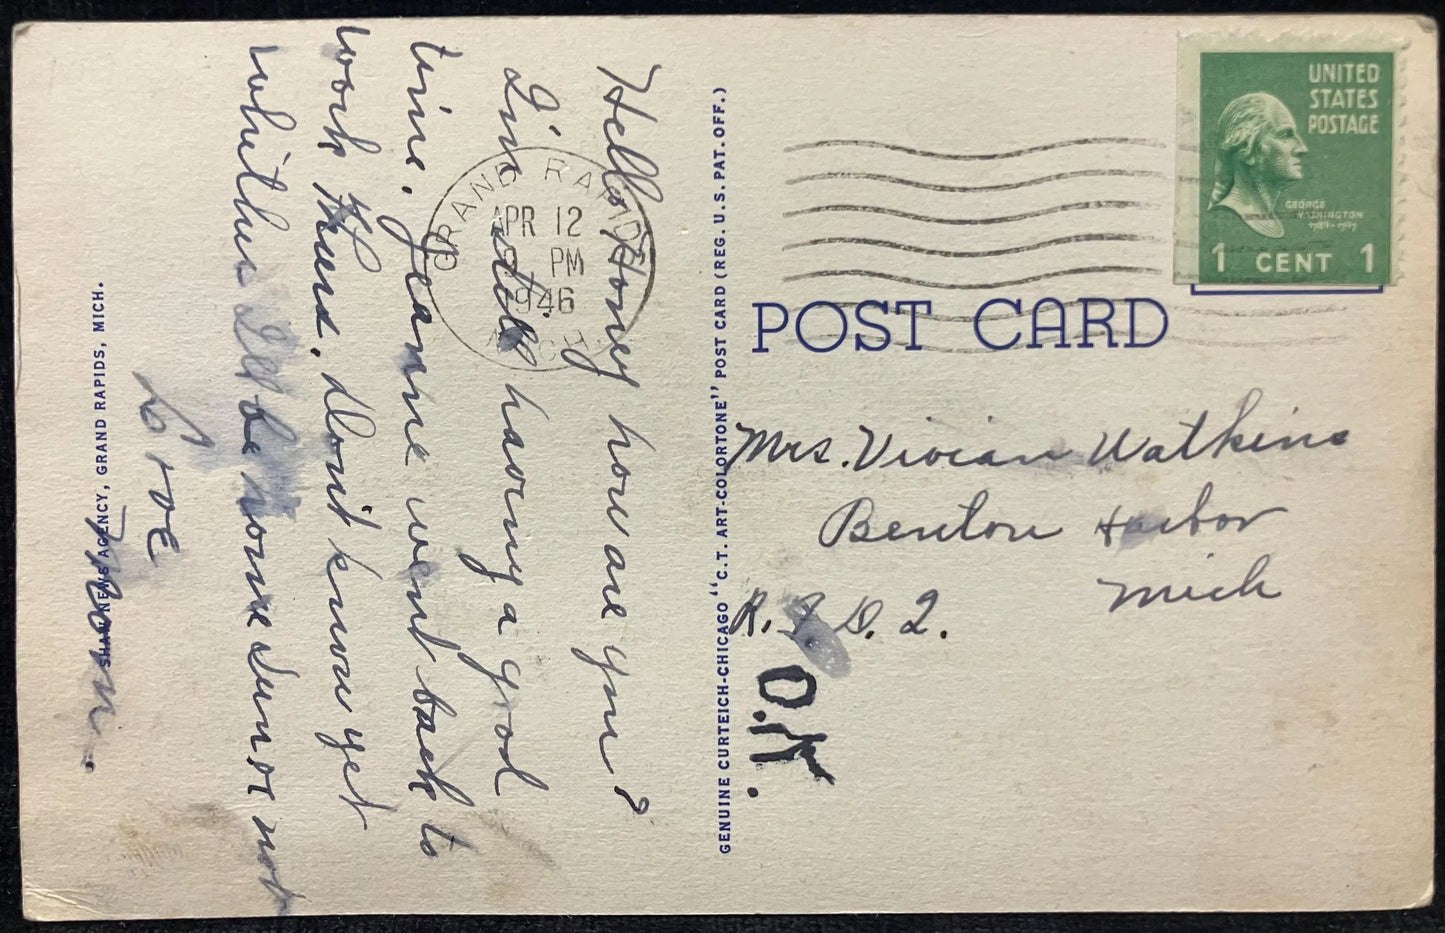 Hello Honey how are you?
I'm still having a good
time. Jeanne went back to
work Thurs. Don't know yet
whither I'll be home Sun or not
Love
Mom.
SHAW NEWS AGENCY, GRAND RAPIDS, MICH.
GENUINE CURTEICH-CHICAGO "C.T. ART-COLORTONE" POST CARD (REG. U.S. PAT. OFF.)
GRAND RAPIDS
APR 12
PM
1946
MICH.
UNITED
STATES
POSTAGE
GEORGE
WASHINGTON
1789-1797
1 CENT 1
POST CARD
Mrs. Vivian Watkins
Benton Harbor
Mich
R.F.D. 2.
O.K.